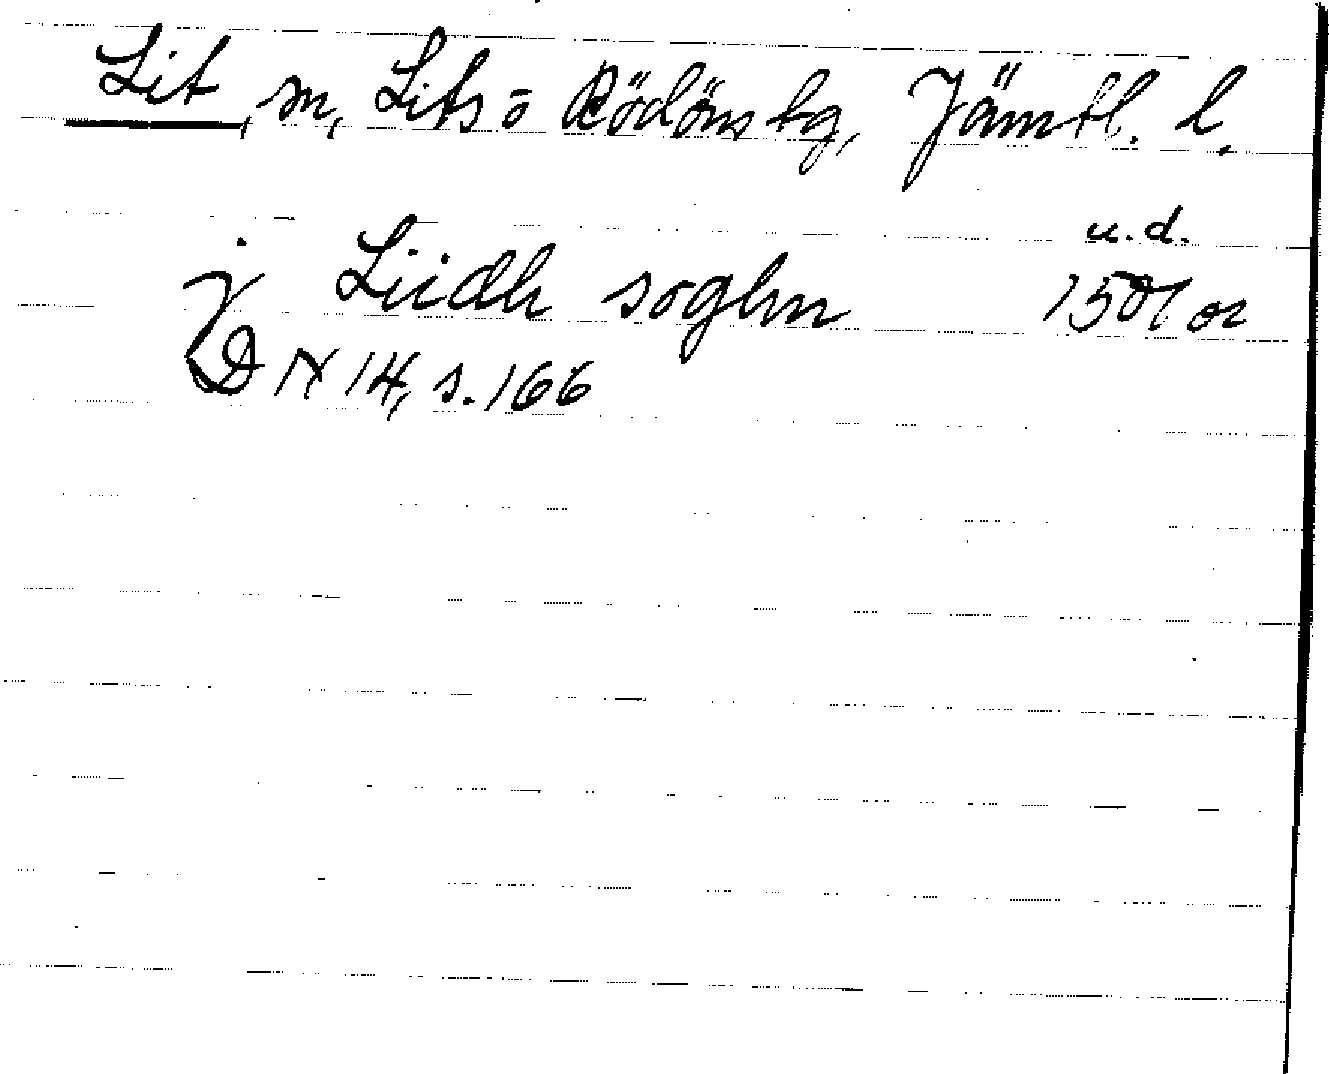 Lit, sn, Lits o Rödöns tg, Jämtl. l.
j Liidh soghn u.d. 1501 or
DN 14, s. 166